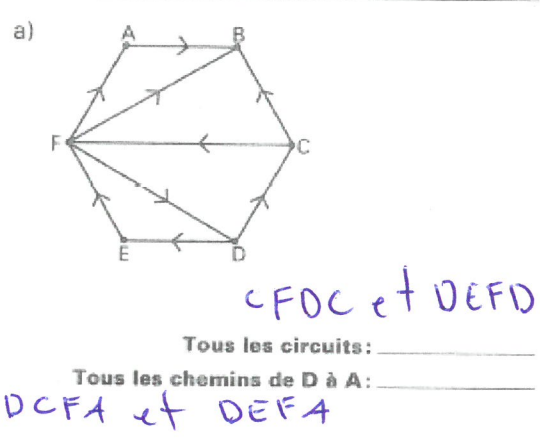 a)
A B
F C
E D
CFDC et DEFD
Tous les circuits:
Tous les chemins de D à A:
DCFA et DEFA